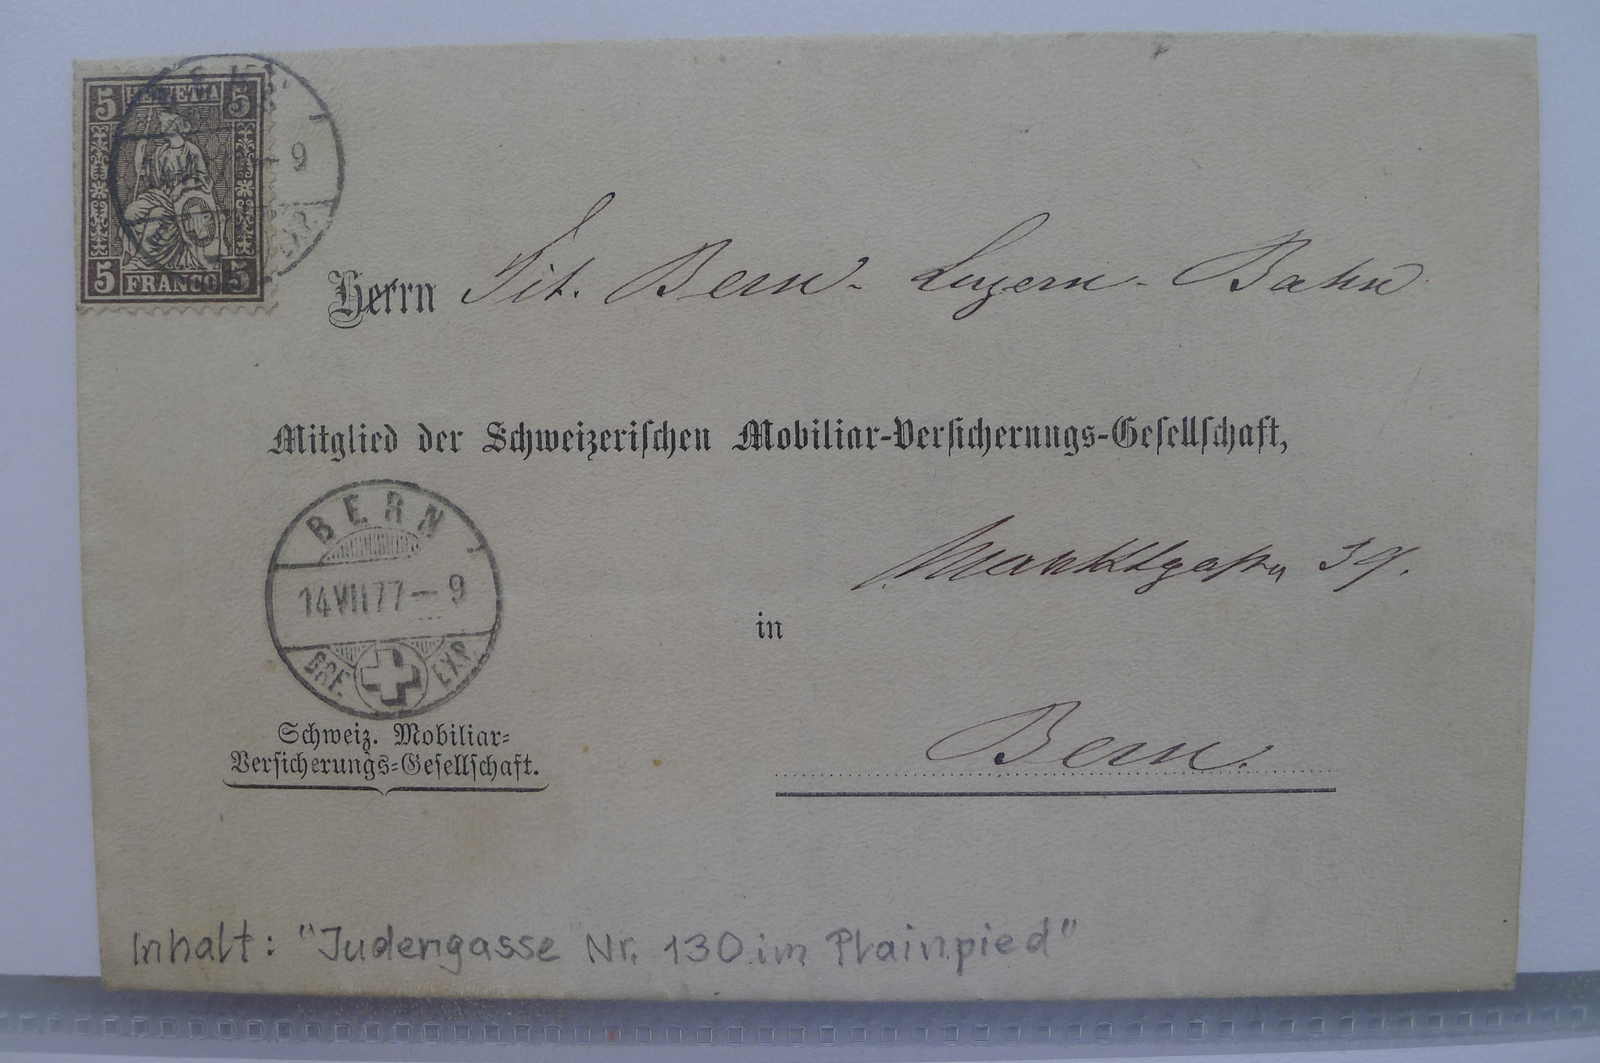 5 HELVETIA 5
5 FRANCO 5
9
Herrn Tit. Bern-Luzern-Bahn
Mitglied der Schweizerischen Mobiliar-Versicherungs-Gesellschaft,
BERN
14 VII 77 - 9
BRF. EXP.
Marktgasse 39.
in
Bern.
Schweiz. Mobiliar-
Versicherungs-Gesellschaft.
Inhalt: "Judengasse Nr. 130 im Plainpied"